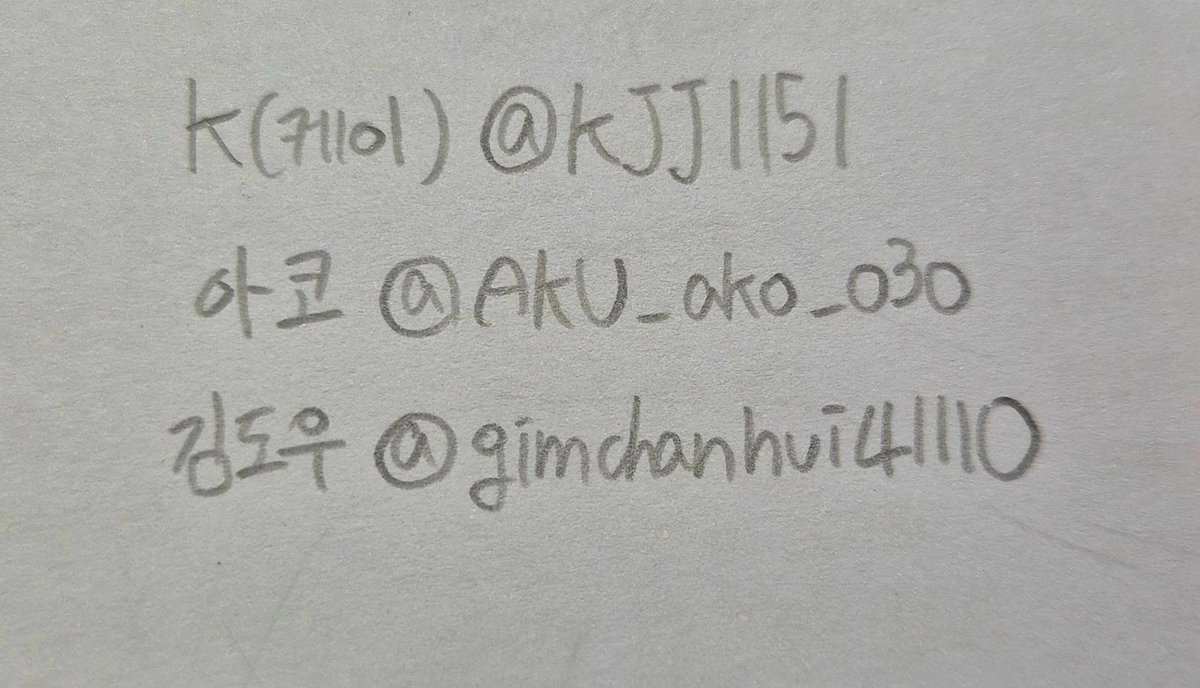 K(케이) @KJJ1151
아코 @AKU_ako_030
김도우 @gimchanhui41110